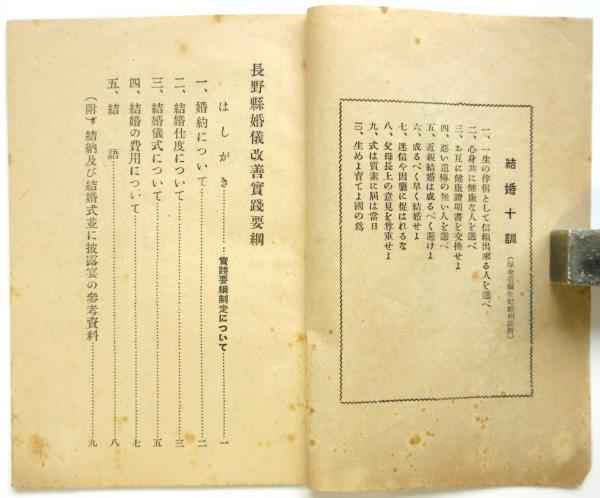 結婚十訓（厚生省優生結婚相談所）
一、一生の伴侶として信頼出來る人を選べ
二、心身共に健康な人を選べ
三、お互に健康證明書を交換せよ
四、惡い遺傳の無い人を選べ
五、近親結婚は成るべく避けよ
六、成るべく早く結婚せよ
七、迷信や因襲に捉はれるな
八、父母長上の意見を尊重せよ
九、式は質素に届は當日
一〇、生めよ育てよ國の爲
長野縣婚儀改善實踐要綱
はしがき…實踐要綱制定について…………一
一、婚約について…………二
二、結婚仕度について…………三
三、結婚儀式について…………五
四、結婚の費用について…………七
五、結語…………八
（附）結納及び結婚式並に披露宴の參考資料…………九